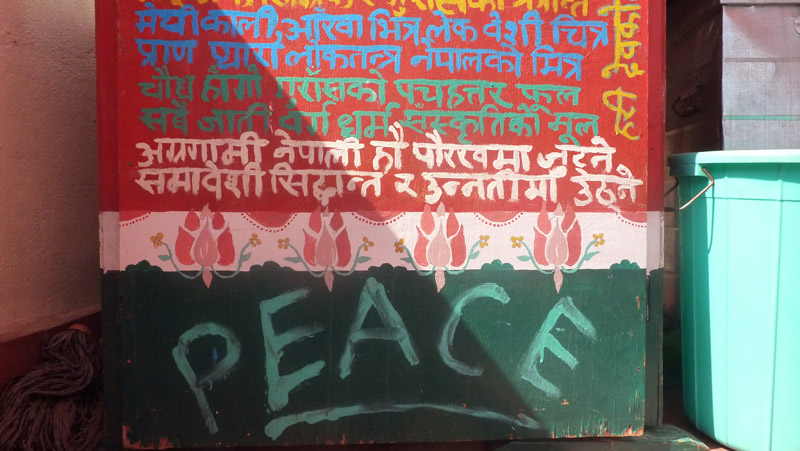 मेची काली, आँखा भित्र लेक वेशी चित्र
प्राण प्यारो लोकतन्त्र नेपालको मित्र
चौध हाँगो गुराँसको पचहत्तर फूल
सबै जाती वर्ग धर्म संस्कृतिको मूल
अग्रगामी नेपाली हौ पौरखमा जुट्ने
समावेशी सिद्धान्त र उन्नतीमा उठ्ने
PEACE